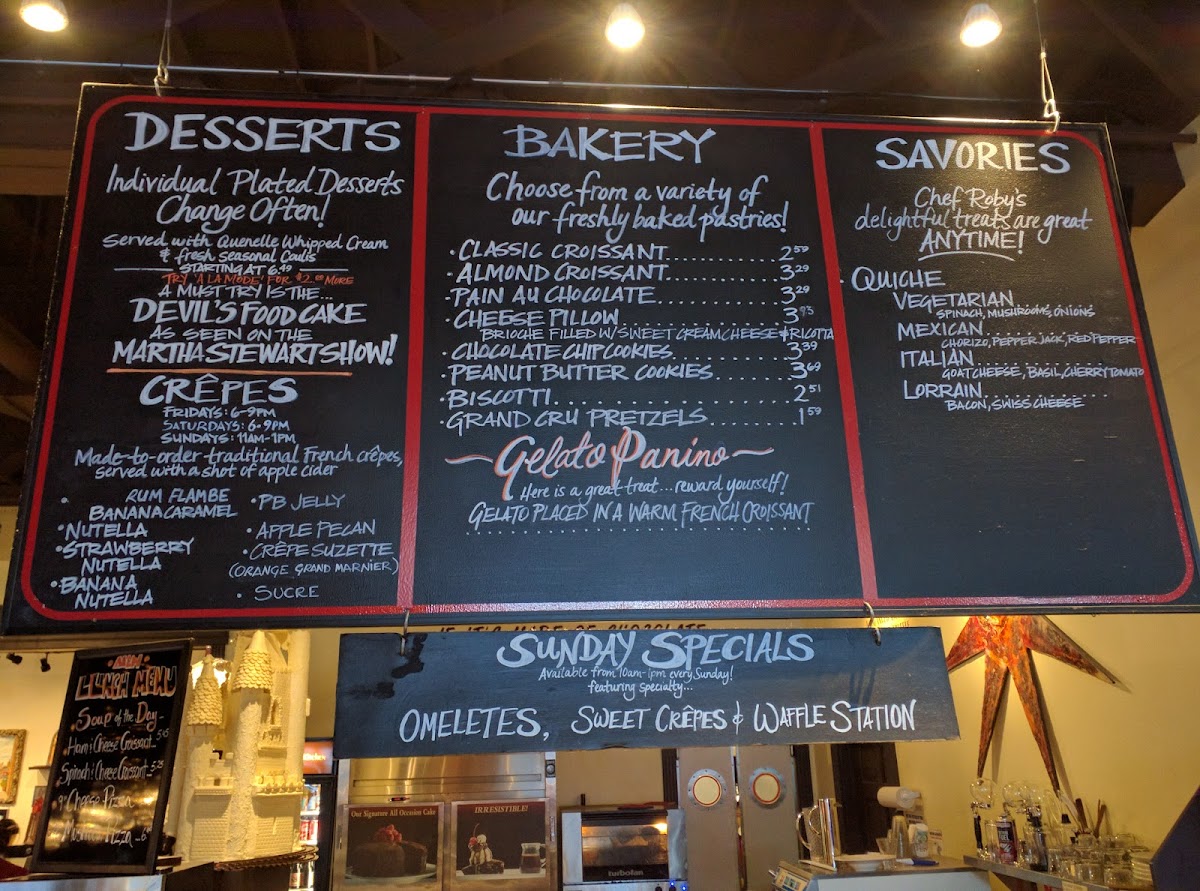 DESSERTS
Individual Plated Desserts
Change Often!
Served with Quenelle Whipped Cream
& fresh seasonal Coulis
STARTING AT 6.49
TRY 'A LA MODE' FOR $2.00 MORE
A MUST TRY IS THE...
DEVIL'S FOOD CAKE
AS SEEN ON THE
MARTHA STEWART SHOW!
CRÊPES
FRIDAYS: 6-9PM
SATURDAYS: 6-9PM
SUNDAYS: 11AM-1PM
Made-to-order traditional French crêpes,
served with a shot of apple cider
• RUM FLAMBE
BANANA CARAMEL
• NUTELLA
• STRAWBERRY
NUTELLA
• BANANA
NUTELLA
• PB JELLY
• APPLE PECAN
• CRÊPE SUZETTE
(ORANGE GRAND MARNIER)
• SUCRE
BAKERY
Choose from a variety of
our freshly baked pastries!
• CLASSIC CROISSANT.............2.59
• ALMOND CROISSANT.............3.29
• PAIN AU CHOCOLATE.............3.29
• CHEESE PILLOW.............3.93
BRIOCHE FILLED W/ SWEET CREAM CHEESE & RICOTTA
• CHOCOLATE CHIP COOKIES.............3.39
• PEANUT BUTTER COOKIES.............3.69
• BISCOTTI.............2.51
• GRAND CRU PRETZELS.............1.59
~Gelato Panino~
Here is a great treat... reward yourself!
GELATO PLACED IN A WARM FRENCH CROISSANT
SAVORIES
Chef Roby's
delightful treats are great
ANYTIME!
• QUICHE
VEGETARIAN.............
SPINACH, MUSHROOMS, ONIONS
MEXICAN.............
CHORIZO, PEPPER JACK, RED PEPPER
ITALIAN.............
GOAT CHEESE, BASIL, CHERRY TOMATO
LORRAIN.............
BACON, SWISS CHEESE
SUNDAY SPECIALS
Available from 10am-1pm every Sunday!
featuring specialty...
OMELETES, SWEET CRÊPES & WAFFLE STATION
LUNCH MENU
• Soup of the Day
• Ham & Cheese Croissant
• Spinach & Cheese Croissant 5.25
Our Signature All Occasion Cake
IRRESISTIBLE!
turbofan